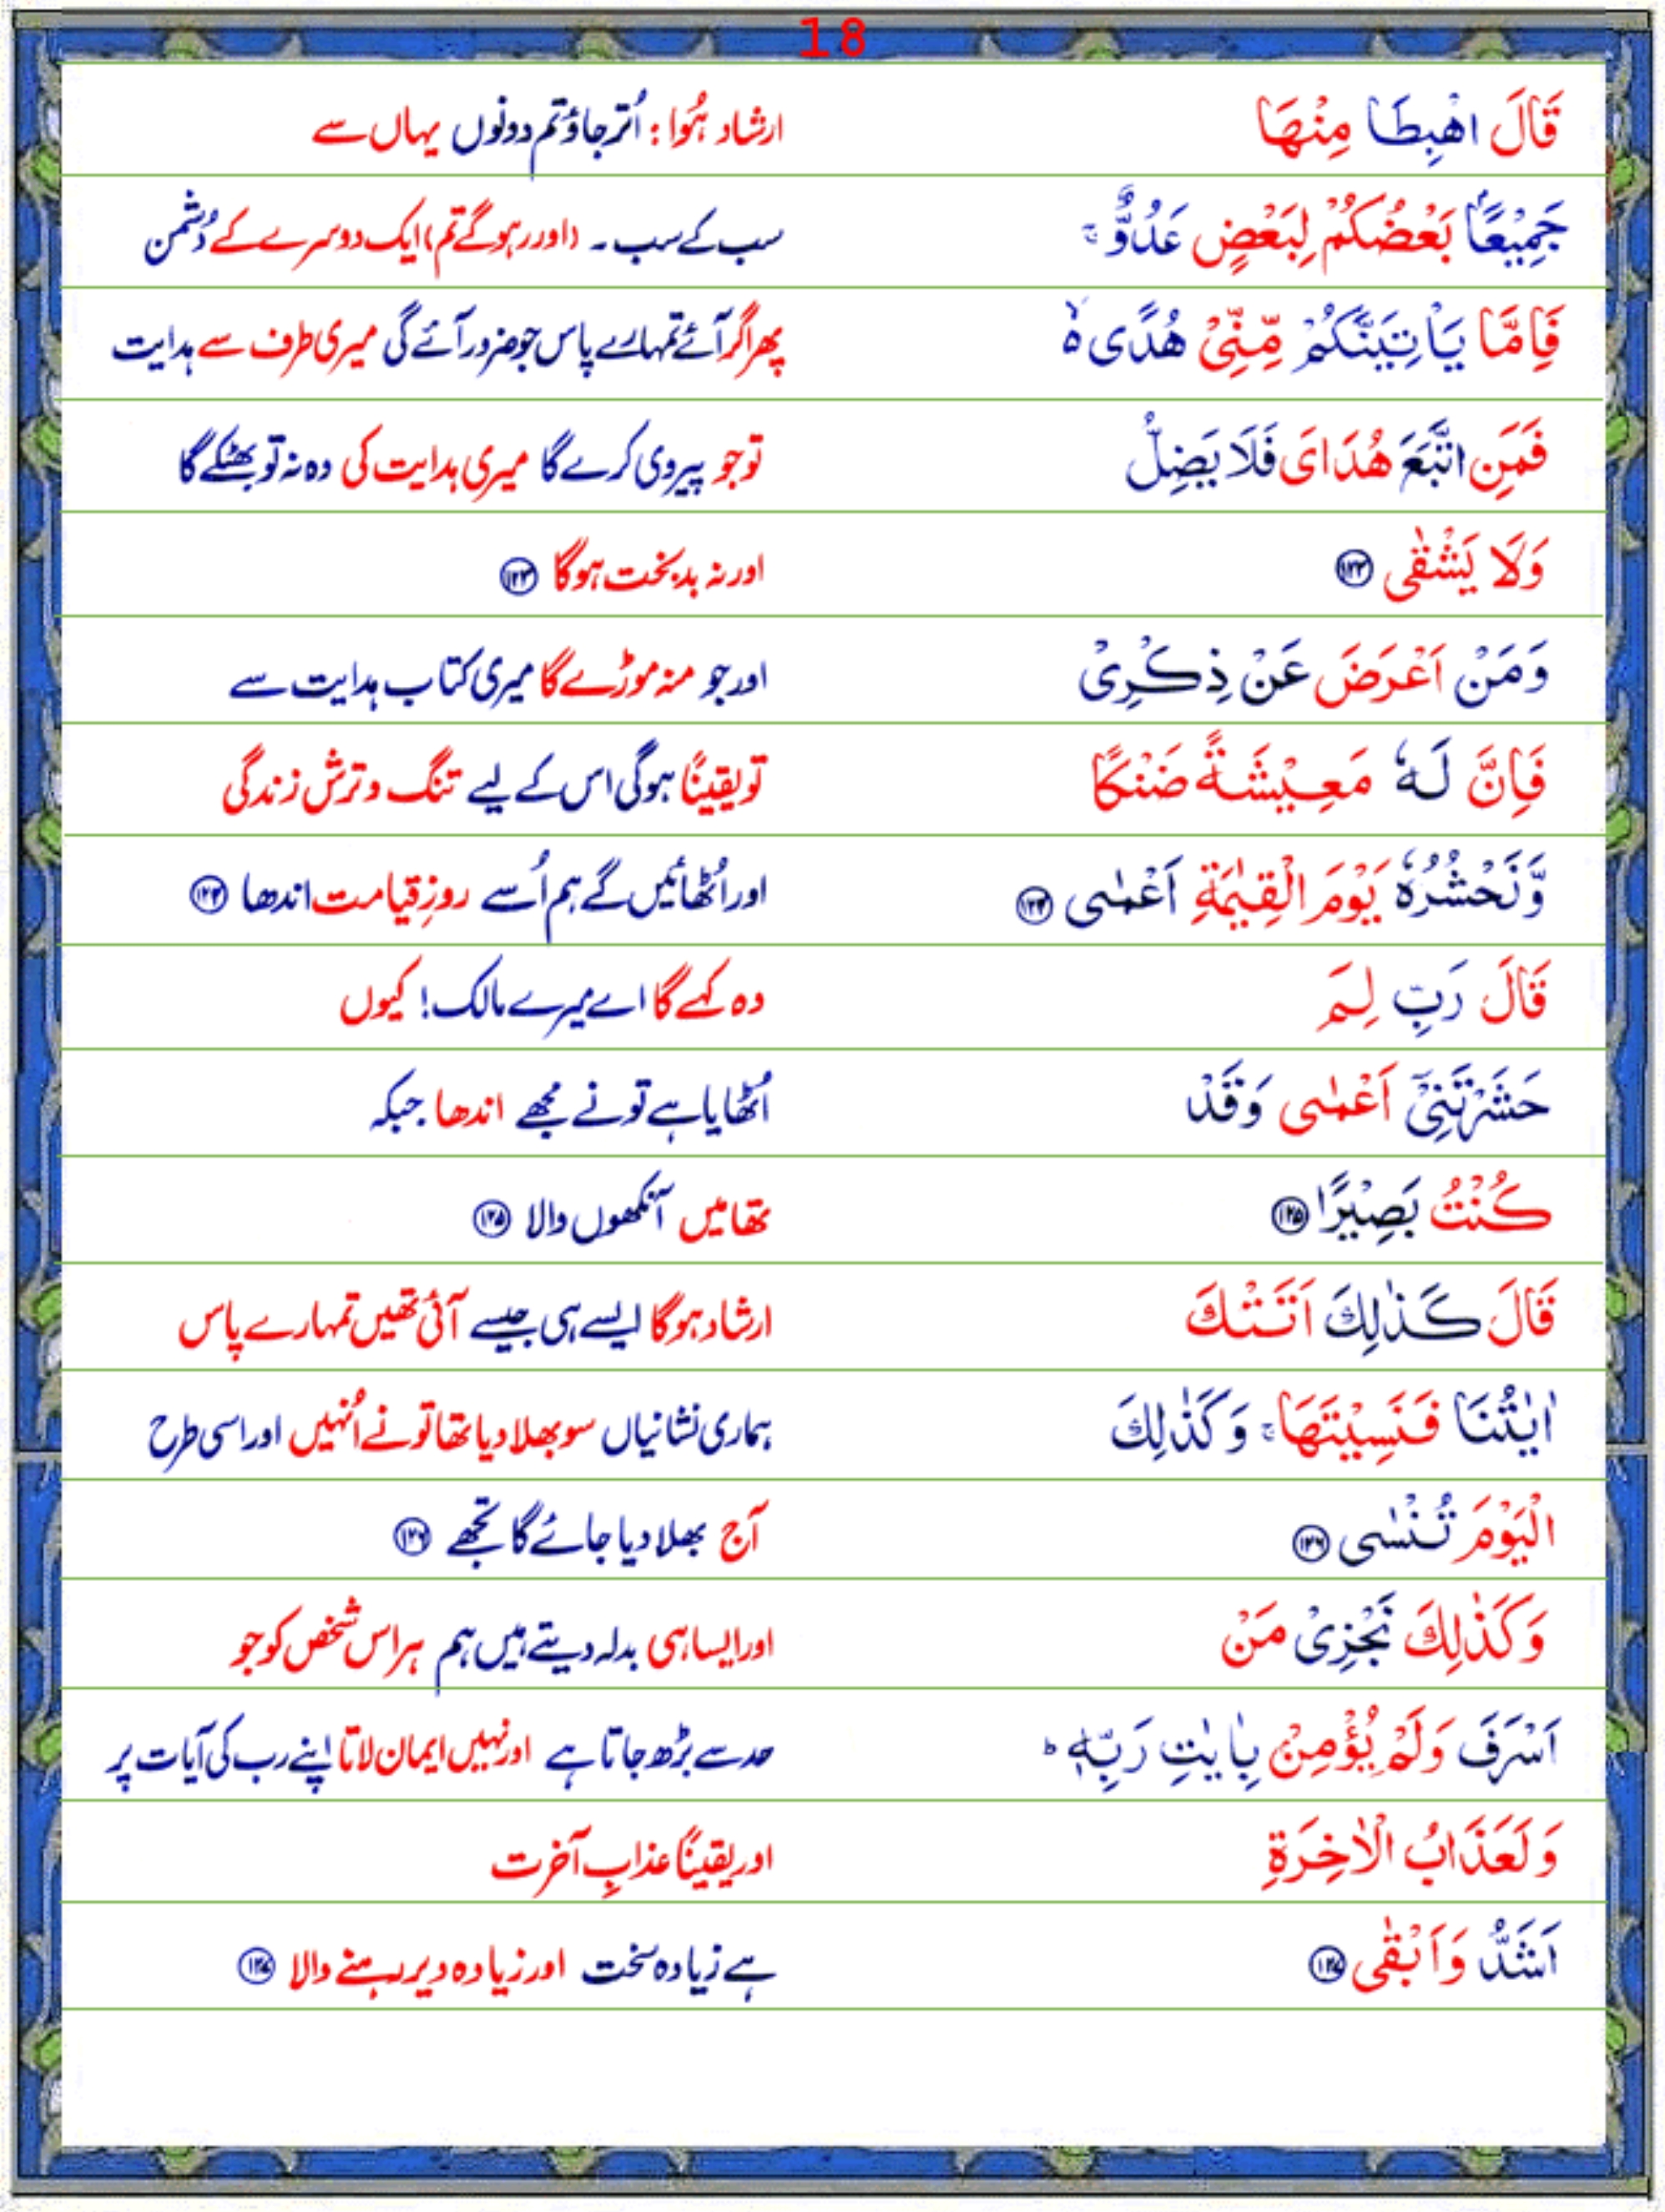 18
قَالَ اهْبِطَا مِنْهَا ارشاد ہُوا : اُتر جاؤ تم دونوں یہاں سے
جَمِیْعًۢا بَعْضُكُمْ لِبَعْضٍ عَدُوٌّ ۚ سب کے سب ۔ (اور رہو گے تم) ایک دوسرے کے دُشمن
فَاِمَّا یَاْتِیَنَّكُمْ مِّنِّیْ هُدًی ۙ۬ پھر اگر آئے تمہارے پاس جو ضرور آئے گی میری طرف سے ہدایت
فَمَنِ اتَّبَعَ هُدَایَ فَلَا یَضِلُّ تو جو پیروی کرے گا میری ہدایت کی وہ نہ تو بھٹکے گا
وَلَا یَشْقٰی ﴿۱۲۳﴾ اور نہ بد بخت ہوگا ﴿۱۲۳﴾
وَمَنْ اَعْرَضَ عَنْ ذِكْرِیْ اور جو منہ موڑے گا میری کتاب ہدایت سے
فَاِنَّ لَهٗ مَعِیْشَةً ضَنْكًا تو یقینًا ہوگی اس کے لیے تنگ و ترش زندگی
وَّنَحْشُرُهٗ یَوْمَ الْقِیٰمَةِ اَعْمٰی ﴿۱۲۴﴾ اور اُٹھائیں گے ہم اُسے روزِ قیامت اندھا ﴿۱۲۴﴾
قَالَ رَبِّ لِمَ وہ کہے گا اے میرے مالک! کیوں
حَشَرْتَنِیْۤ اَعْمٰی وَقَدْ اُٹھایا ہے تو نے مجھے اندھا جبکہ
كُنْتُ بَصِیْرًا ﴿۱۲۵﴾ تھا میں آنکھوں والا ﴿۱۲۵﴾
قَالَ كَذٰلِكَ اَتَتْكَ ارشاد ہوگا ایسے ہی جیسے آئی تھیں تمہارے پاس
اٰیٰتُنَا فَنَسِیْتَهَا ۚ وَكَذٰلِكَ ہماری نشانیاں سو بھلا دیا تھا تو نے اُنہیں اور اسی طرح
الْیَوْمَ تُنْسٰی ﴿۱۲۶﴾ آج بھلا دیا جائے گا تجھے ﴿۱۲۶﴾
وَكَذٰلِكَ نَجْزِیْ مَنْ اور ایسا ہی بدلہ دیتے ہیں ہم ہر اس شخص کو جو
اَسْرَفَ وَلَمْ یُؤْمِنْۢ بِاٰیٰتِ رَبِّهٖ ؕ حد سے بڑھ جاتا ہے اور نہیں ایمان لاتا اپنے رب کی آیات پر
وَلَعَذَابُ الْاٰخِرَةِ اور یقینًا عذابِ آخرت
اَشَدُّ وَاَبْقٰی ﴿۱۲۷﴾ ہے زیادہ سخت اور زیادہ دیر رہنے والا ﴿۱۲۷﴾